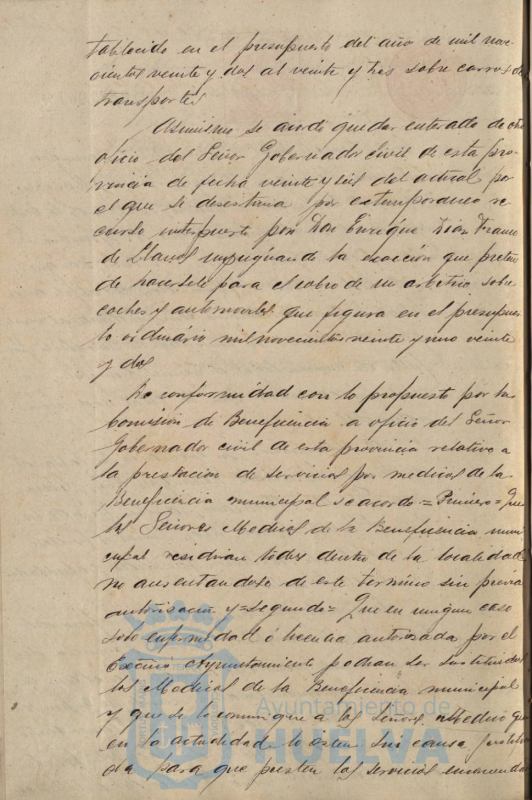 tablecido en el presupuesto del año de mil nove
cientos veinte y dos al veinte y tres sobre carros de
transportes
Asimismo se acordó quedar enterado de otro
oficio del Señor Gobernador civil de esta pro-
vincia de fecha veinte y seis del actual por
el que se desestima por extemporaneo re
curso interpuesto por Don Enrique Diaz Franco
de Llanos impugnando la exacción que preten
de hacersele para el cobro de un arbitrio sobre
coches y automoviles que figura en el presupues
to ordinario mil novecientos veinte y uno veinte
y dos
De conformidad con lo propuesto por la
Comisión de Beneficencia a oficio del Señor
Gobernador civil de esta provincia relativo a
la prestacion de servicios por medicos de la
Beneficencia municipal se acordó = Primero = Que
los Señores Medicos de la Beneficencia muni
cipal residiran todos dentro de la localidad
no ausentandose de este termino sin previa
autorización y = segundo = Que en ningun caso
solo enfermedad ó licencia autorizada por el
Excmo Ayuntamiento podran ser sustituidos
los Medicos de la Beneficencia municipal
y que se le comunique a los Señores Medicos que
en la actualidad lo esten sin causa justifica
da para que presten los servicios encomenda
Ayuntamiento de
HUELVA